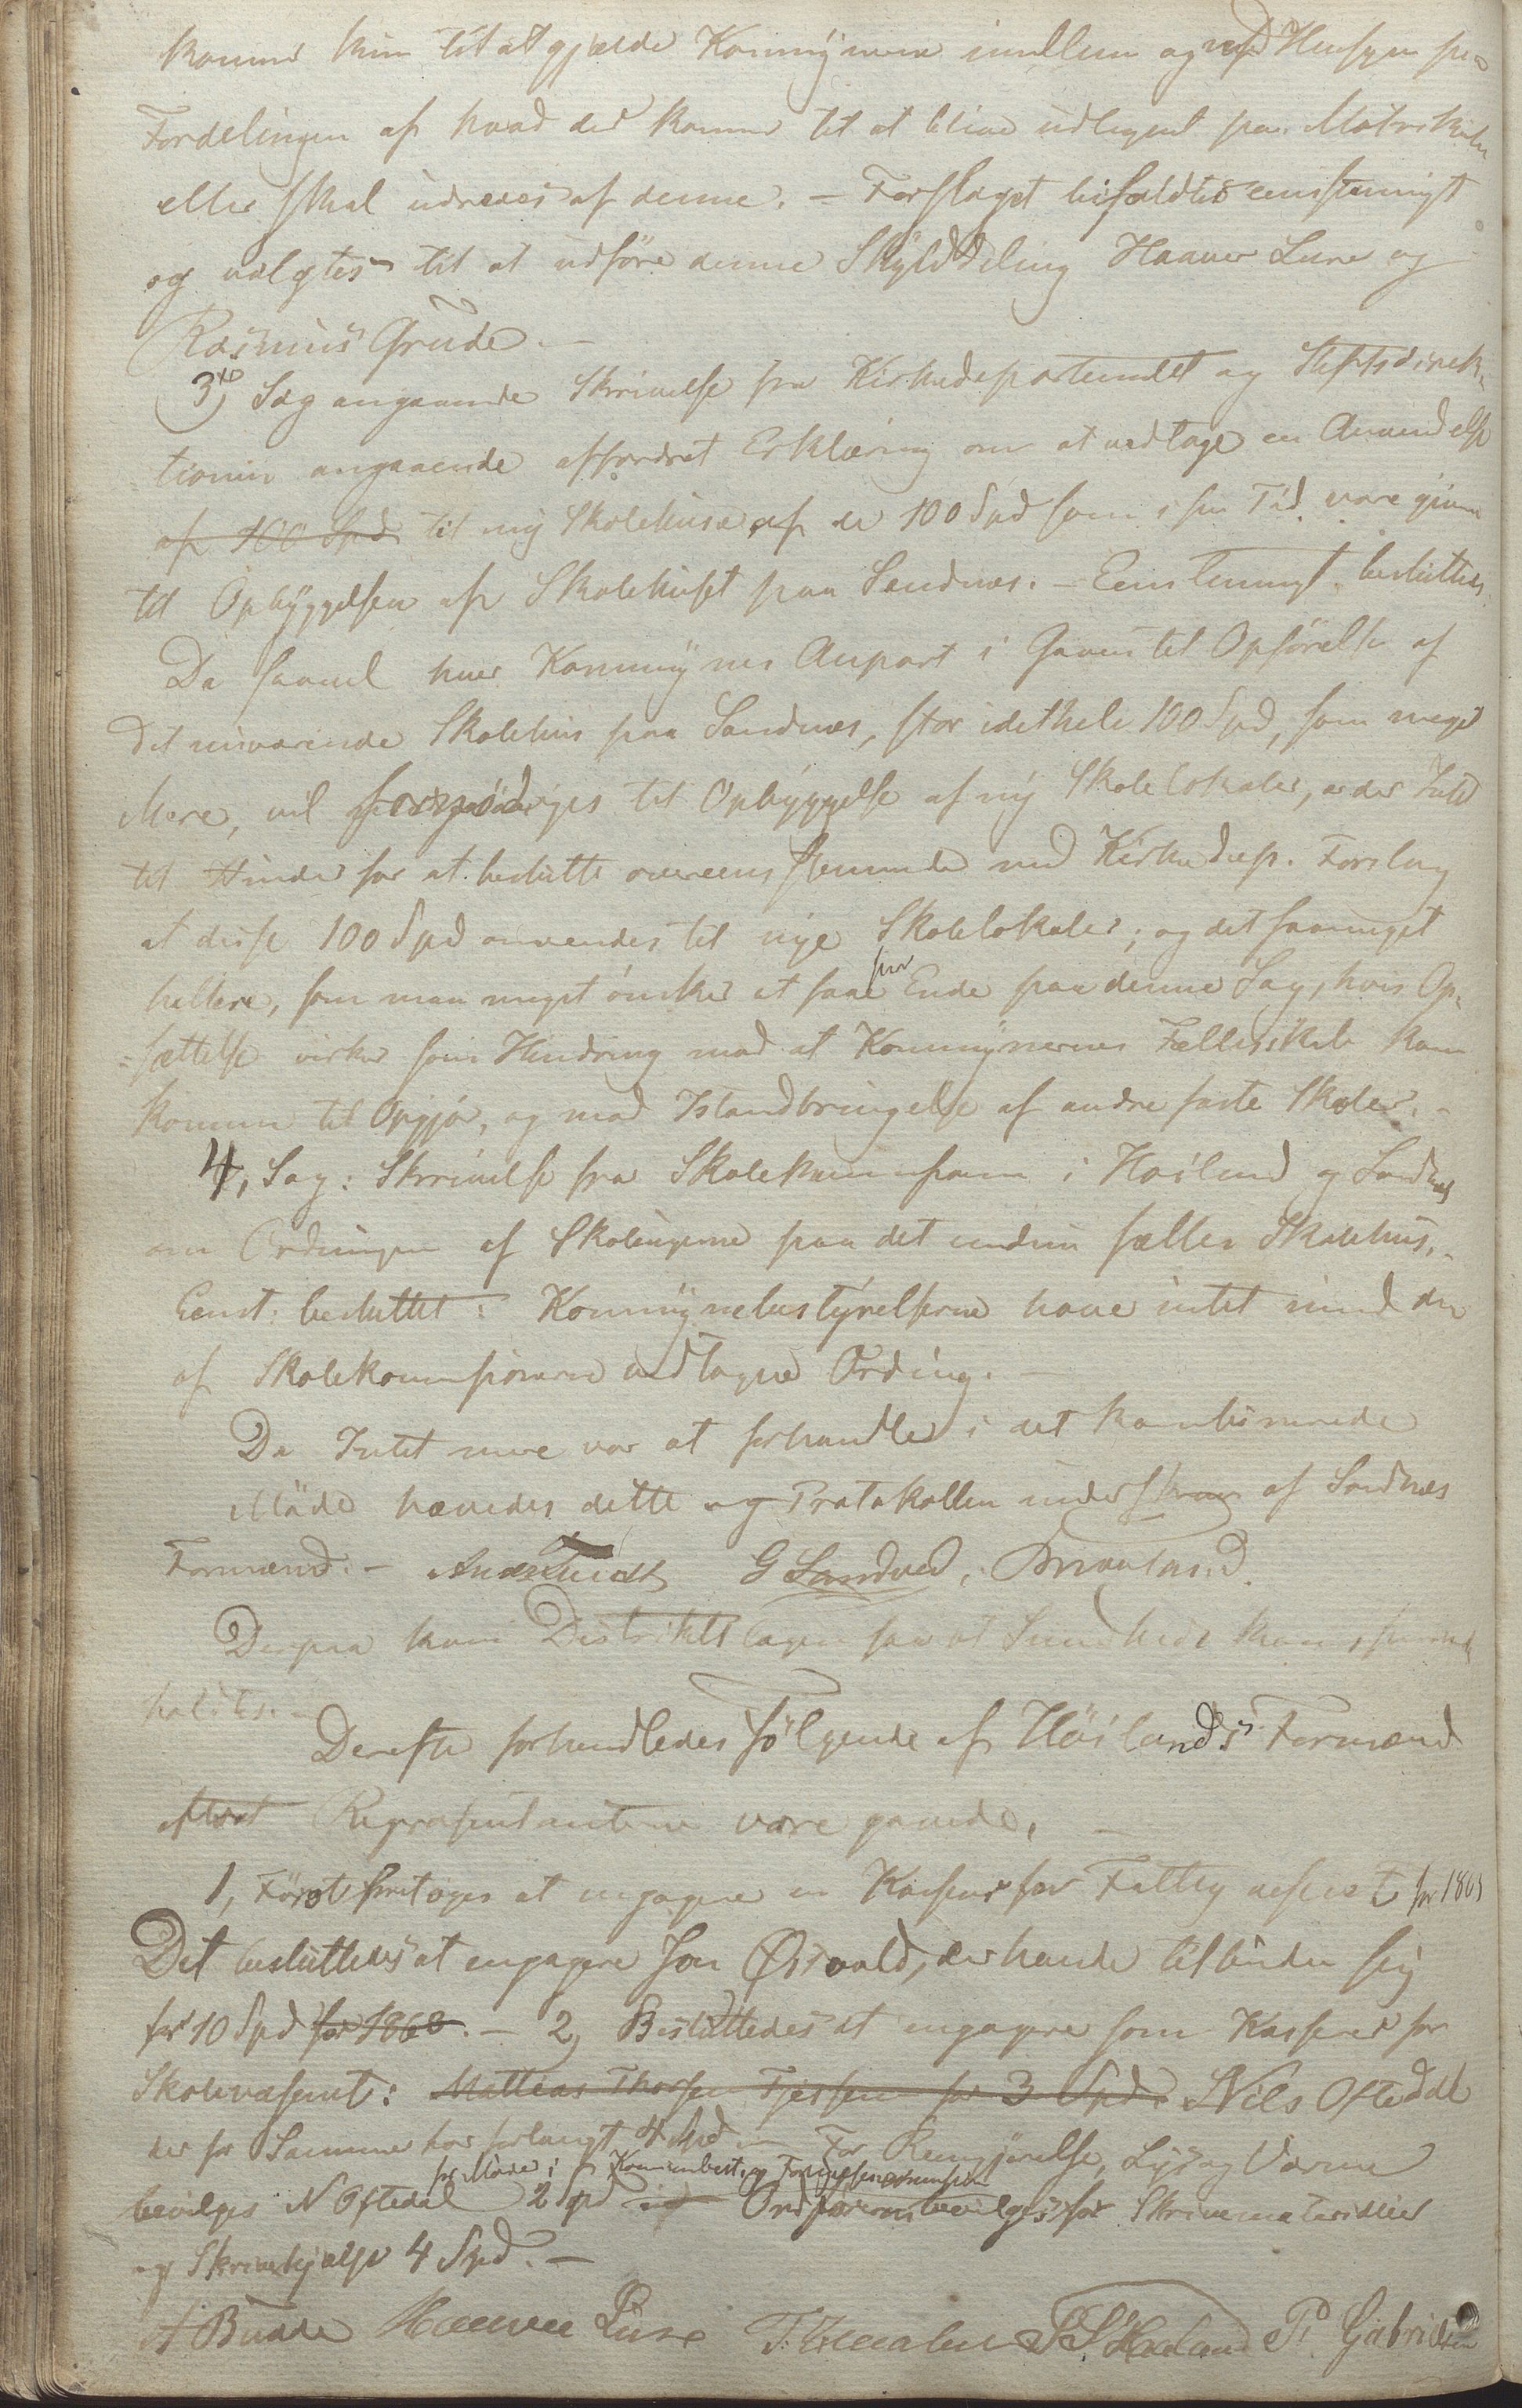 kommer kun til at gjælde Kommunerne imellem og med Hensyn paa
Fordelingen af hvad der kommer til at blive udlignet paa Matrikulen
eller skal udredes af denne. – Forslaget bifaldtes eenstemmigt
og valgtes til at udføre denne Skylddeling Haaver Lura og
Rasmus Grude. –
3die Sag angaaende Skrivelse fra Kirkedepartementet og Stiftsdirek-
tionen angaaende affordret Erklæring om at vedtage en Anvendelse
af 100 Spd til ny Skolehuse af de 100 Spd som i sin Tid vare givne
til Opbyggelsen af Skolehuset paa Sandnæs. – Eenstemmigt besluttes
Da saavel hver Kommunes Anpart i Gaven til Opførelse af
det nuværende Skolehus paa Sandnæs, stor idethele 100 Spd, som meget
Mere, vil forrødiges til Opbyggelse af ny Skolelokaler, er der Intet
til Hinder for at beslutte overeensstemmende med Kirkedep. Forslag
at disse 100 Spd anvendes til nye Skolelokaler; og det saameget
hellere, som man meget ønsker at faae en Ende paa denne Sag, hvis Op-
sættelse virker som Hindring mod at Kommunernes Fællesskab kan
komme til Opgjør, og mod Istandbringelse af andre faste Skoler. –
4, Sag: Skrivelse fra Skolekommissionen i Høiland og Sandnæs
om Ordningen af Skolingerne paa det endnu fælles Skolehus. –
Eenst. besluttet: Kommunebestyrelserne have intet imod den
af Skolekommissionerne vedtagne Ordning. –
Da Intet mere var at forhandle i det kombinerede
Møde hævedes dette og Protokollen underskrev af Sandnæs
Formænd. – G Sandved,
Derpaa kom Distriktslægen saa at Sundhedskommissionen
holdtes. –
Derefter forhandledes følgende af Høilands Formænd
efterat Repræsentanterne vare gaaede. –
1, Først foretoges at engagere en Kasserer for Fattigvæsenet for 1869
Det besluttedes at engagere Jon Østvold, der havde tilbudet sig
for 10 Spd for 1868. – 2, Besluttedes at engagere som Kasserer for
Skolevæsenet: Mathias Thorsen for 3 Spd. Nils Oftedal
der for Samme har forlangt 4 Spd – For Rengjørelse, Lys og Varme
for Møder i Kommunbest. og Forligelseskommission
bevilges N Oftedal 2 Spd og Ordføreren bevilges for Skrivematerialier
og Skrivehjælp 4 Spd. –
A Budde Haaver Lura P. Gabrielsen